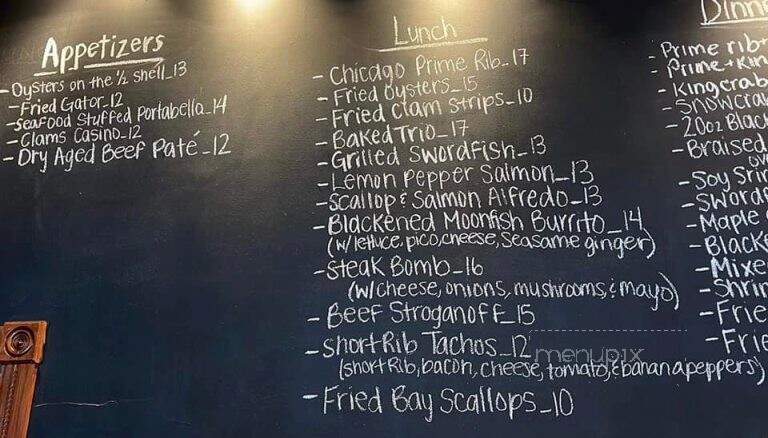 Appetizers
- Oysters on the ½ shell_13
- Fried Gator_12
- Seafood Stuffed Portabella_14
- Clams Casino_12
- Dry Aged Beef Paté_12
Lunch
- Chicago Prime Rib_17
- Fried Oysters_15
- Fried Clam Strips_10
- Baked Trio_17
- Grilled Swordfish_13
- Lemon Pepper Salmon_13
- Scallop & Salmon Alfredo_13
- Blackened Moonfish Burrito_14
(w/lettuce, pico, cheese, seasame ginger)
- Steak Bomb_16
(w/cheese, onions, mushrooms, & mayo)
- Beef Stroganoff_15
- Short Rib Tachos_12
(short rib, bacon, cheese, tomato, & banana peppers)
- Fried Bay Scallops_10
Dinn
- Prime rib
- Prime + Kin
- King crab
- Snowcra
- 20oz Black
- Braised
ov
- Soy Srir
- Swordf
- Maple
- Blacke
- Mixe
- Shrin
- Frie
- Frie
menupix